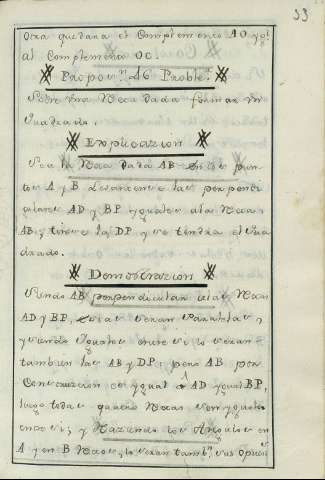 33
otra quedara el Complemento AO ygl.
al Complemento OC.
Propon.n 46 Proble.a
Sobre una Recta dada formar un
Quadrado.
Explicazion
Sea la Recta dada AB en los pun
tos A y B. Levantense las perpendi
culares AD y BP yguales a la Recta
AB, y tirese la DP y se tendra el Qua
drado.
Demostrazion
Siendo AB perpendicular a las Rectas
AD y BP, estas seran Paralelas,
y siendo Yguales entre si, lo seran
tambien las AB y DP: pero AB por
Construczion es ygual a AD ygual BP,
luego todas quatro Rectas son yguales
entre si; y Hazando los Angulos en
A y en B Rectos, lo seran tamb.n sus opues